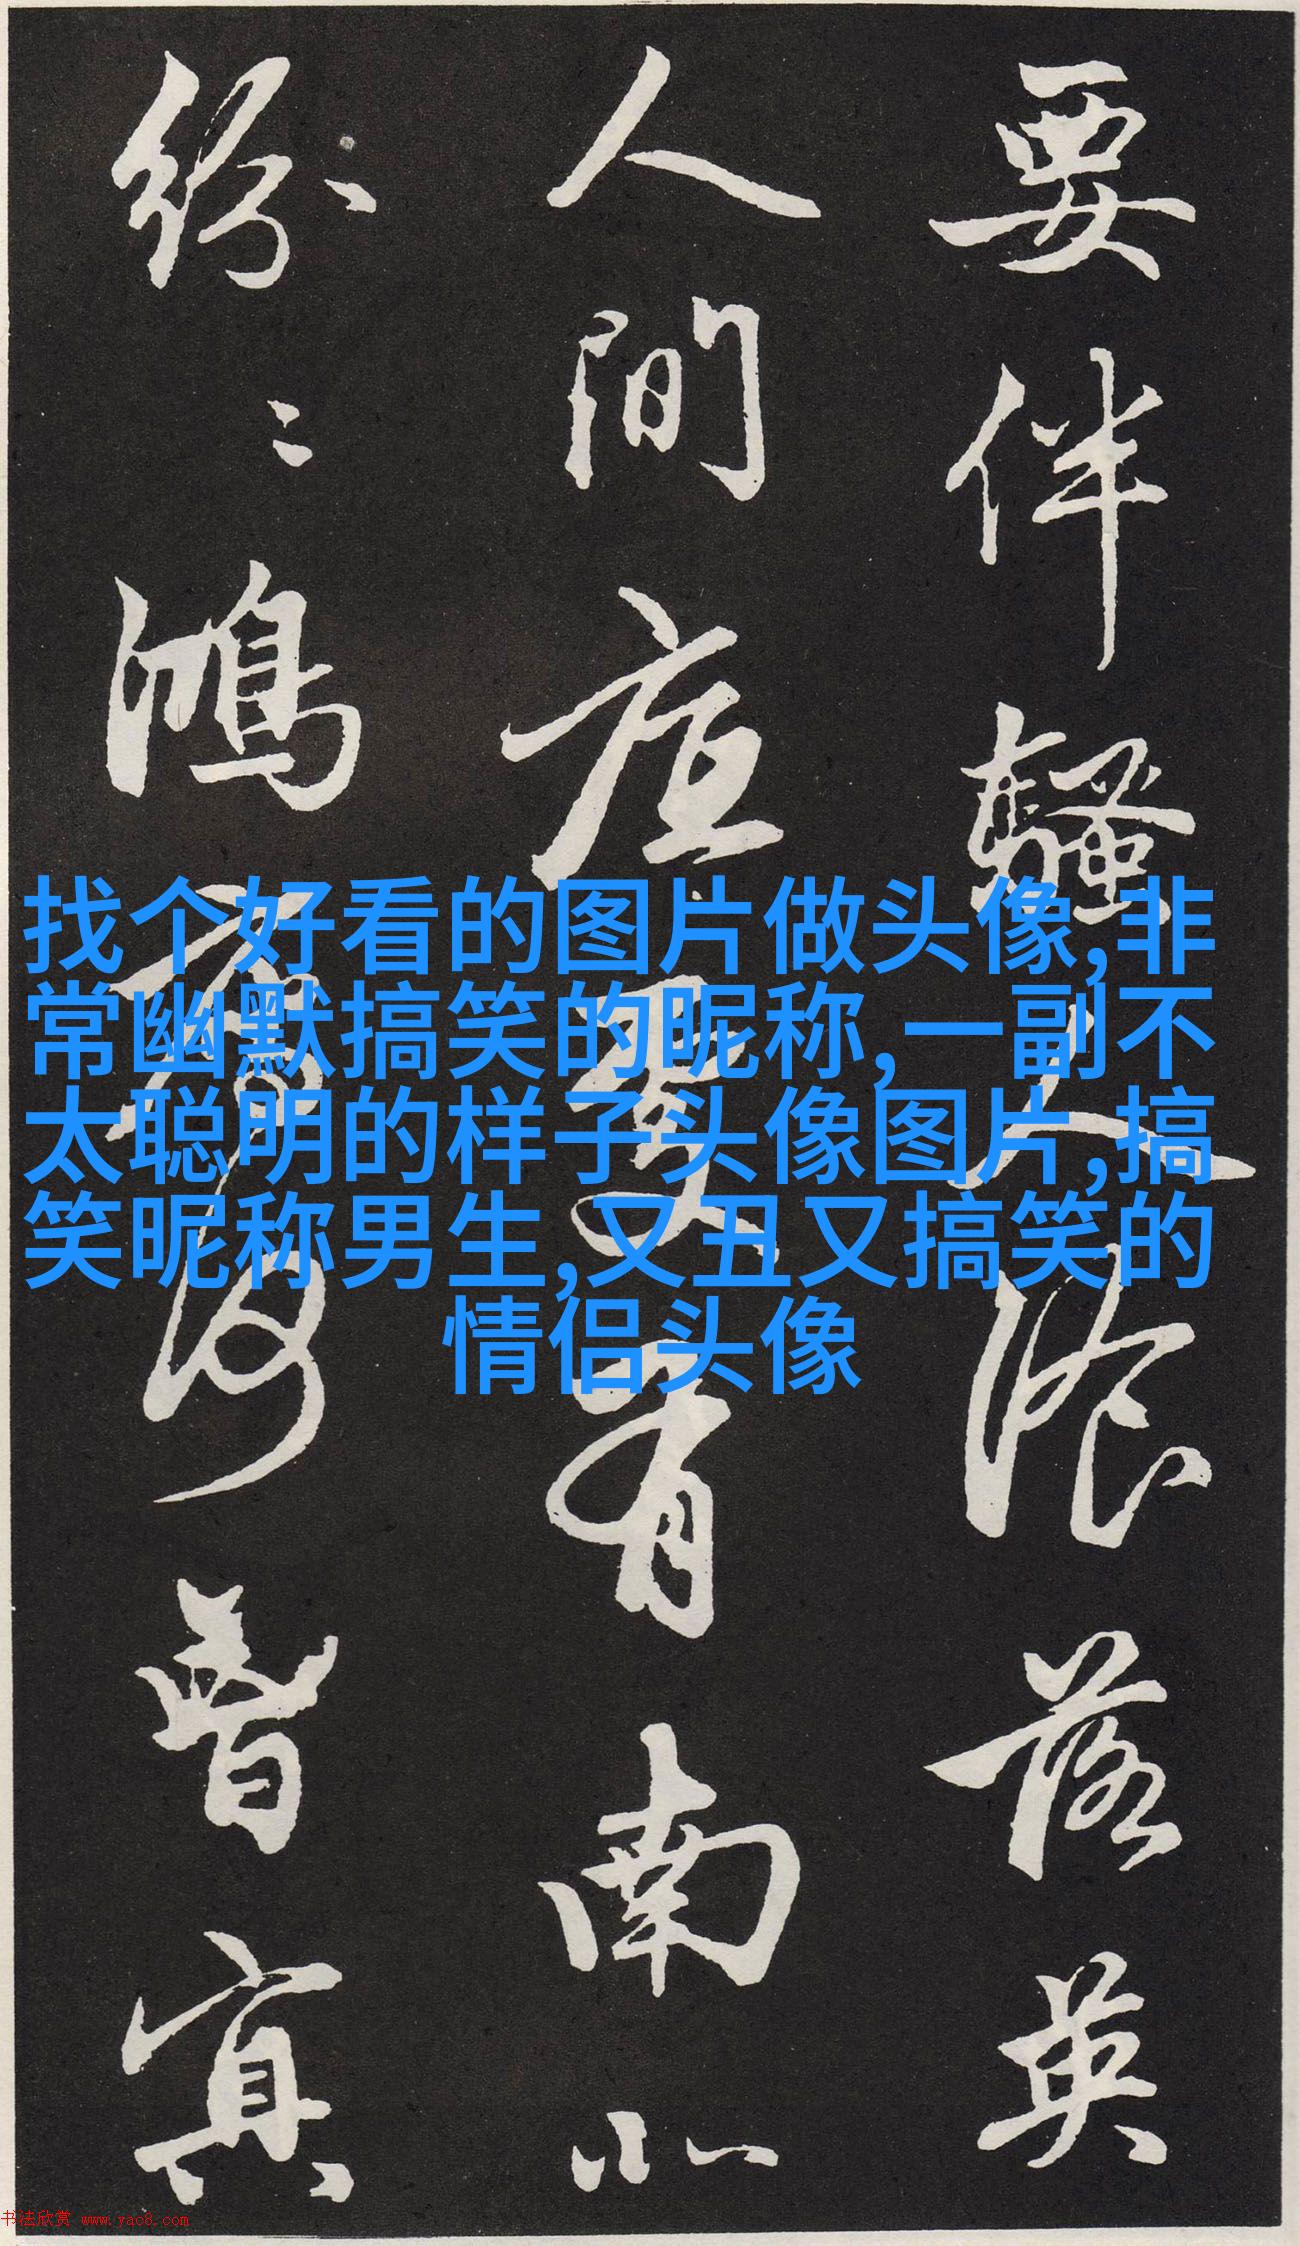 要伴騷人湌落英
人間底處有南北
紛〻鴻鴈何曾㝠
找个好看的图片做头像,非
常幽默搞笑的昵称,一副不
太聪明的样子头像图片,搞
笑昵称男生,又丑又搞笑的
情侣头像
书法欣赏 www.yac8.com